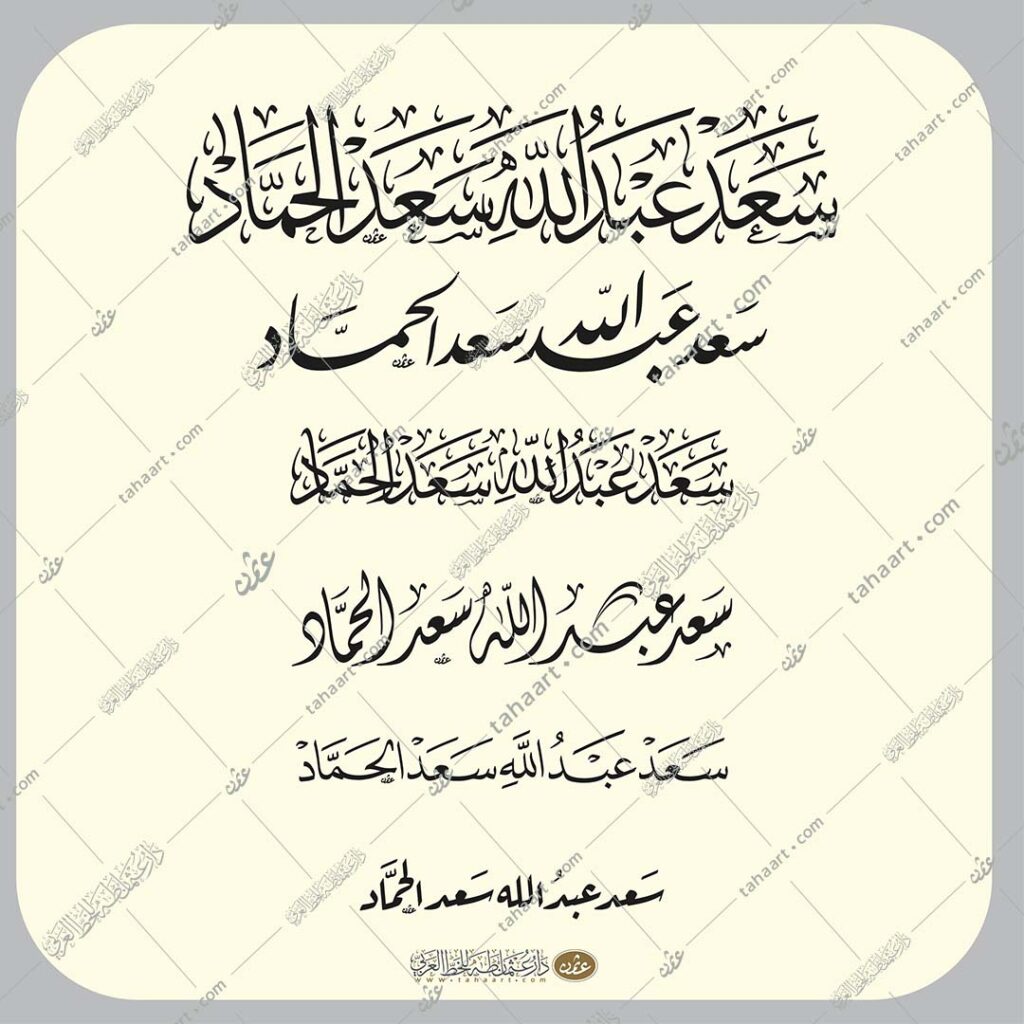 سَعَدْ عَبَدُ اللّٰهِ سَعَدْ الحَمَّادْ
سَعد عَبد اللّٰه سَعد الحمَّاد
سَعَدْ عَبْدُ اللّٰهِ سَعَدْ الحَمَّادْ
سَعد عَبد اللّٰهُ سَعد الحمَّاد
سَعَدْ عَبَدُ اللَّهِ سَعَدْ الحَمَّادْ
سَعد عبدُ الله سَعد الحمَّاد
دار عثمان طه للخط العربي
عثمان
www.tahaart.com
tahaart.com